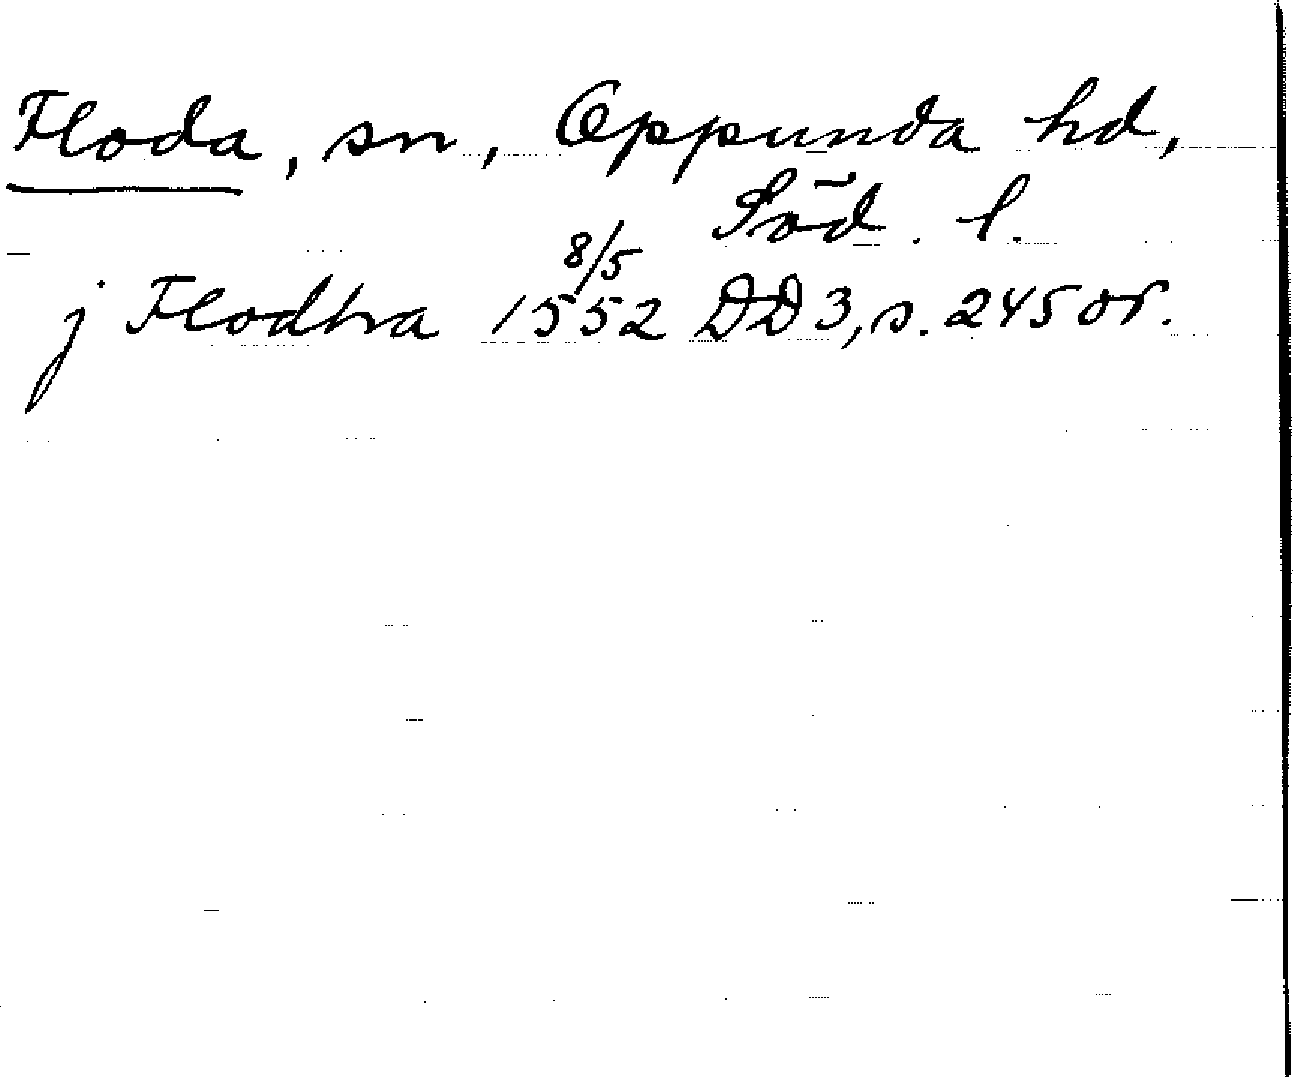 Floda, sn, Oppunda hd,
Söd. l.
j Flodhra 1552 8/5 DD3, s. 245 or.